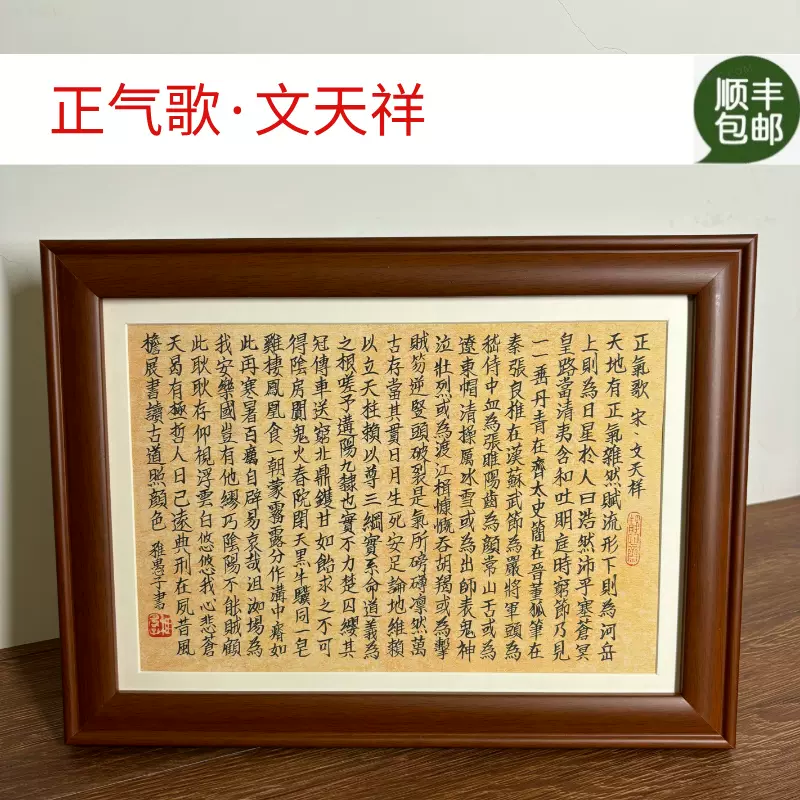 正气歌·文天祥
顺丰
包邮
正氣歌 宋·文天祥
天地有正氣雜然賦流形下則為河岳
上則為日星於人曰浩然沛乎塞蒼冥
皇路當清夷含和吐明庭時窮節乃見
一一垂丹青在齊太史簡在晉董狐筆在
秦張良椎在漢蘇武節為嚴將軍頭為
嵇侍中血為張睢陽齒為顏常山舌或為
遼東帽清操厲冰雪或為出師表鬼神
泣壯烈或為渡江楫慷慨吞胡羯或為擊
賊笏逆豎頭破裂是氣所磅礡凜然萬
古存當其貫日月生死安足論地維賴
以立天柱賴以尊三綱實系命道義為
之根嗟予遘陽九隸也實不力楚囚纓其
冠傳車送窮北鼎鑊甘如飴求之不可
得陰房闃鬼火春院閉天黑牛驥同一皂
雞棲鳳凰食一朝蒙霧露分作溝中瘠如
此再寒暑百癘自辟易哀哉沮洳場為
我安樂國豈有他繆巧陰陽不能賊顧
此耿耿存仰視浮雲白悠悠我心悲蒼
天曷有極哲人日已遠典刑在夙昔風
檐展書讀古道照顏色 雅愚子書